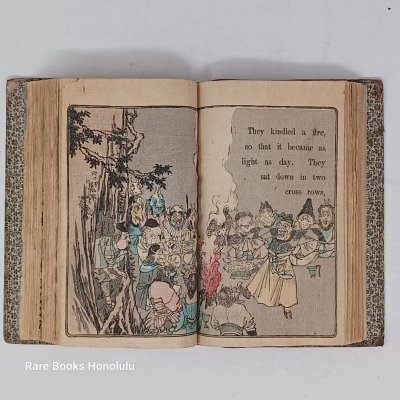 They kindled a fire,
so that it became as
light as day. They
sat down in two
cross rows,
Rare Books Honolulu